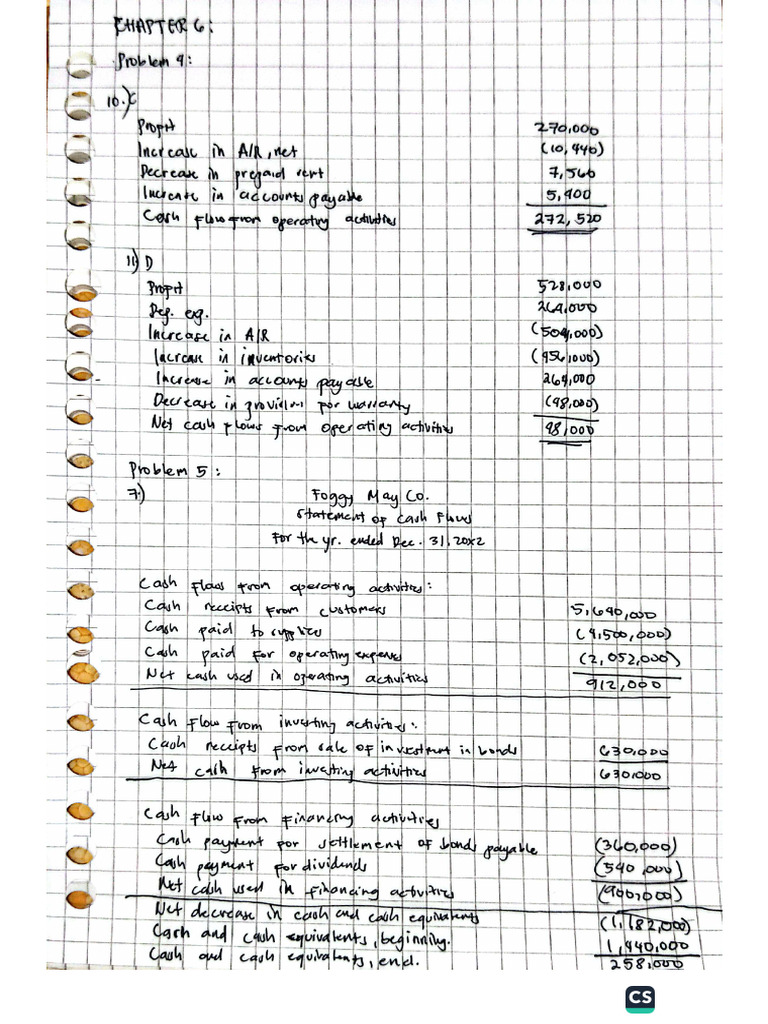 CHAPTER 6:
Problem 4:
10.) C
Profit 270,000
Increase in A/R, net (10,440)
Decrease in prepaid rent 7,560
Increase in accounts payable 5,400
Cash flow from operating activities 272,520
11) D
Profit 528,000
Dep. exp. 264,000
Increase in A/R (504,000)
Increase in inventories (456,000)
Increase in accounts payable 264,000
Decrease in provision for warranty (48,000)
Net cash flows from operating activities 48,000
Problem 5:
7.) Foggy May Co.
Statement of Cash Flows
For the yr. ended Dec. 31, 20x2
Cash flows from operating activities:
Cash receipts from customers 5,640,000
Cash paid to supplies (4,500,000)
Cash paid for operating expenses (2,052,000)
Net cash used in operating activities 912,000
Cash flow from investing activities:
Cash receipts from sale of investment in bonds 630,000
Net cash from investing activities 630,000
Cash flow from financing activities
Cash payment for settlement of bonds payable (360,000)
Cash payment for dividends (540,000)
Net cash used in financing activities (900,000)
Net decrease in cash and cash equivalents (1,182,000)
Cash and cash equivalents, beginning. 1,440,000
Cash and cash equivalents, end. 258,000
CS